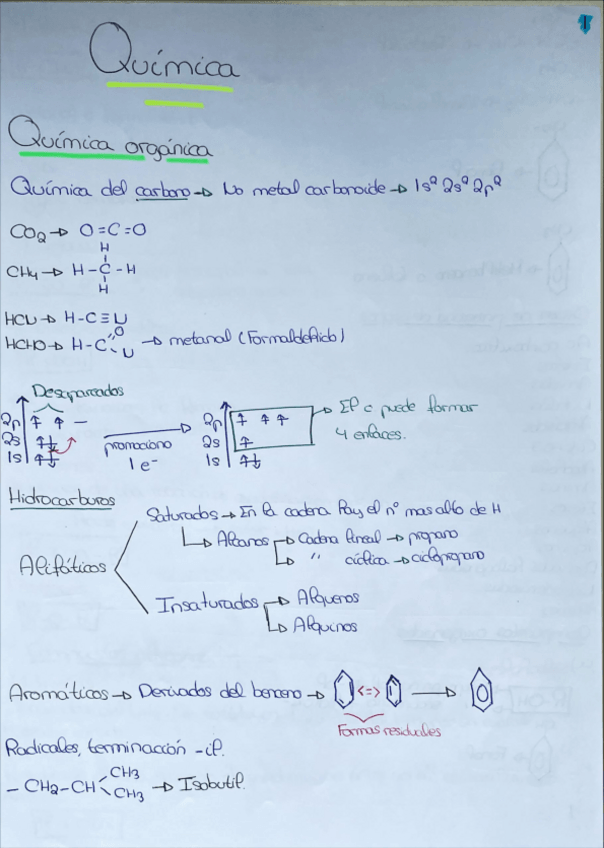 1
Química
Química orgánica
Química del carbono → No metal carbonoide → 1s² 2s² 2p²
CO₂ → O=C=O
H
CH₄ → H-C-H
H
HCN → H-C≡N
HCHO → H-C=O H → metanal (Formaldehido)
Desapareados
2p ↑ ↑ —
2s ↑↓
1s ↑↓
promociono
1 e⁻
2p ↑ ↑ ↑
2s ↑
1s ↑↓
→ El c puede formar
4 enlaces.
Hidrocarburos
Alifáticos
Saturados → En la cadena hay el nº mas alto de H
Alcanos → Cadena lineal → propano
" cíclica → ciclopropano
Insaturados → Alquenos
Alquinos
Aromáticos → Derivados del benceno → <=> →
Formas residuales
Radicales, terminación -il.
- CH₂-CH CH₃ CH₃ → Isobutil.